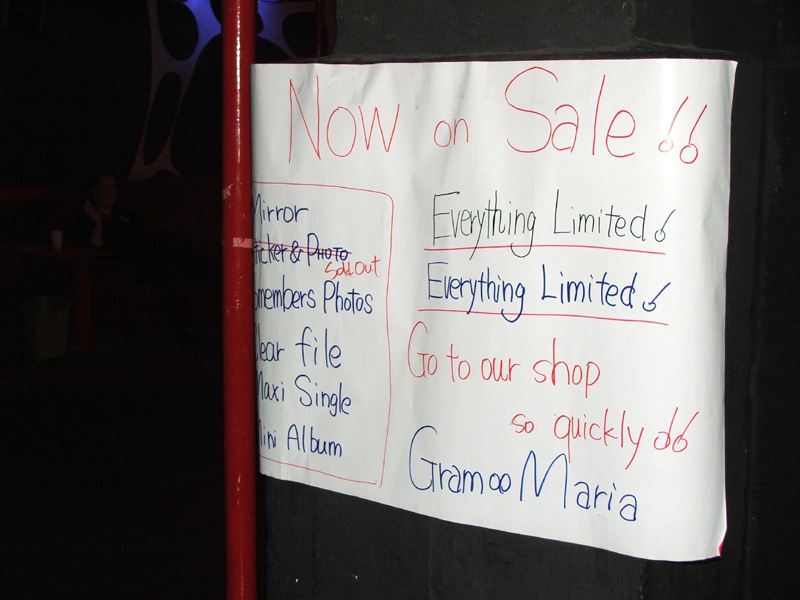 Now on Sale!!
Mirror
& Photo
Sold out
members Photos
file
Maxi Single
Mini Album
Everything Limited!
Everything Limited!
Go to our shop
so quickly!!
Gram∞Maria